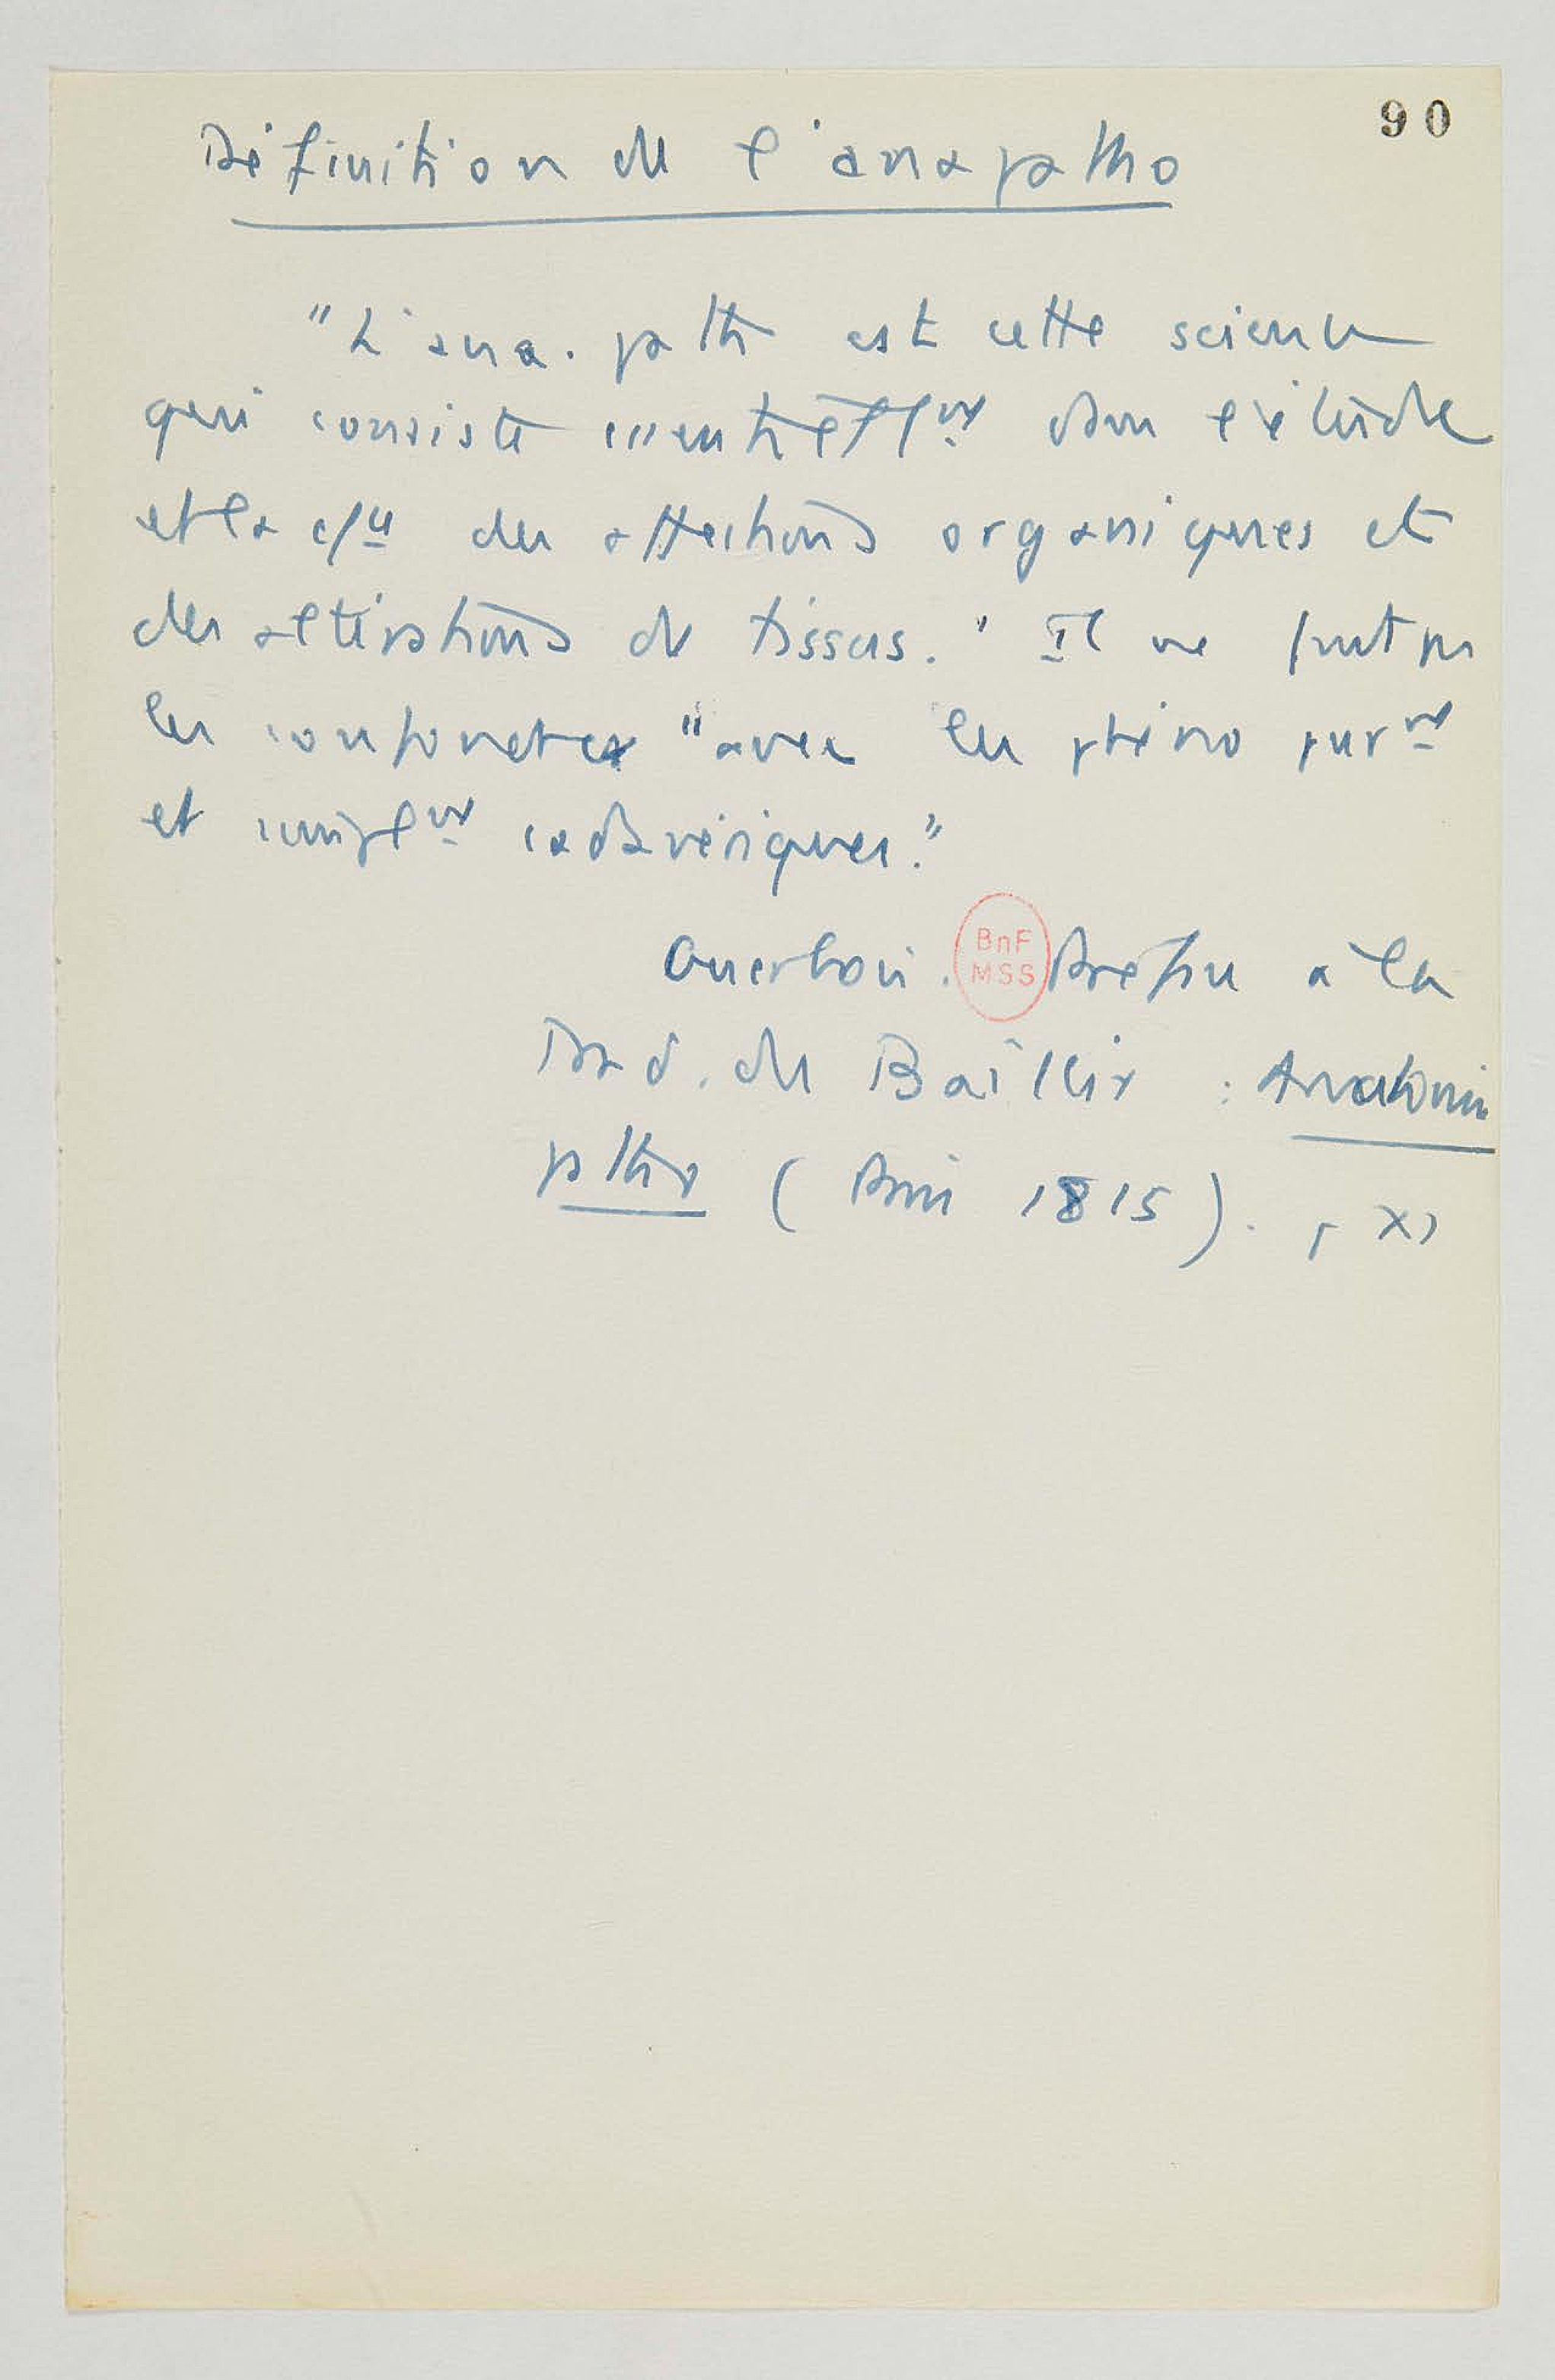 90
Définition de l'ana patho
"L'ana. path est cette science
qui consiste essentiellt dans l'étude
et la c/ce des affections organiques et
des altérations de tissus." Il ne faut pas
les confondre "avec les phéno purnt
et simplnt cadavériques."
Guerbois. Préface à la
BnF
MSS
Trad. de Baillie : Anatomie
patho (Paris 1815). p XI